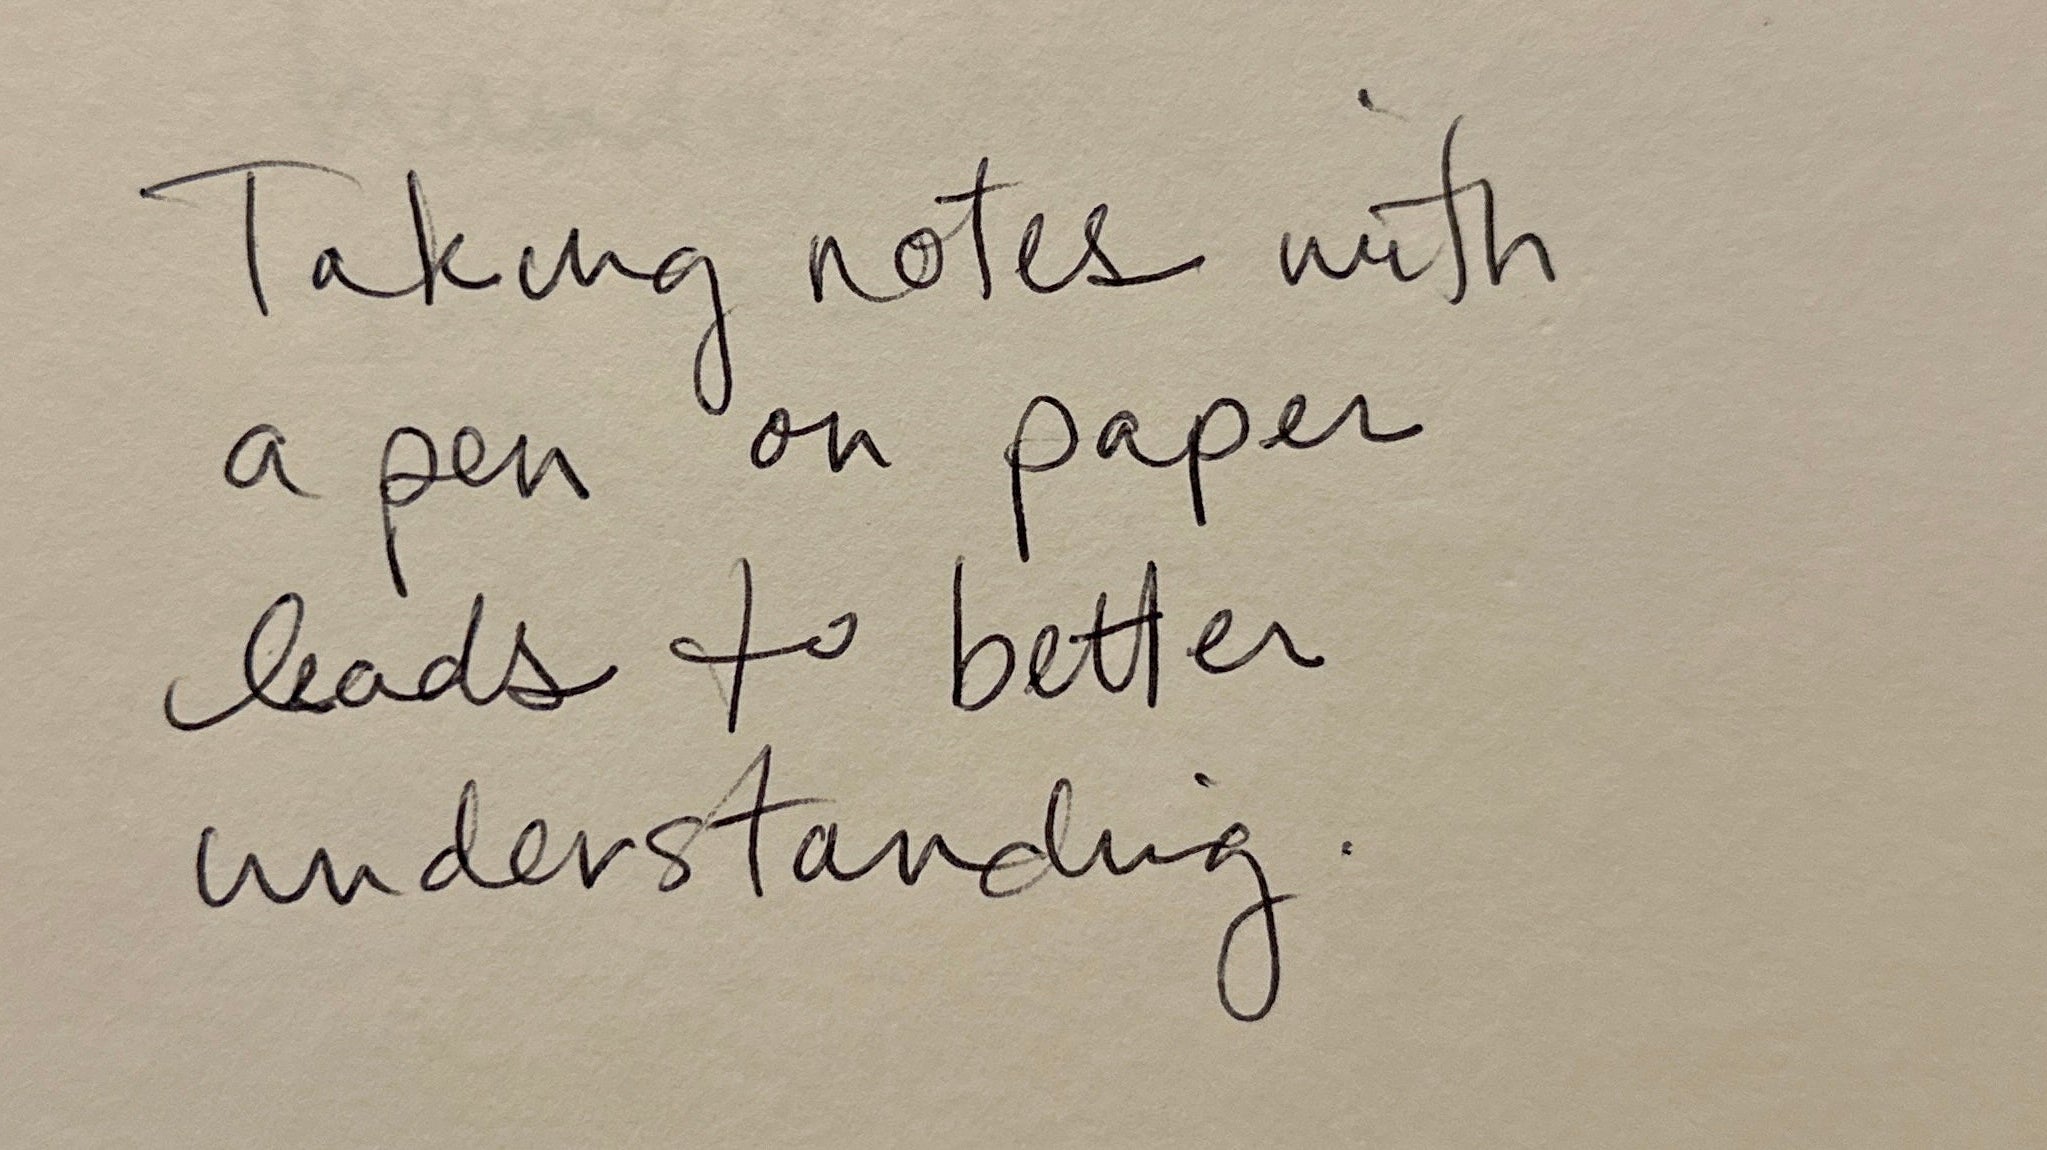 Taking notes with
a pen on paper
leads to better
understanding.